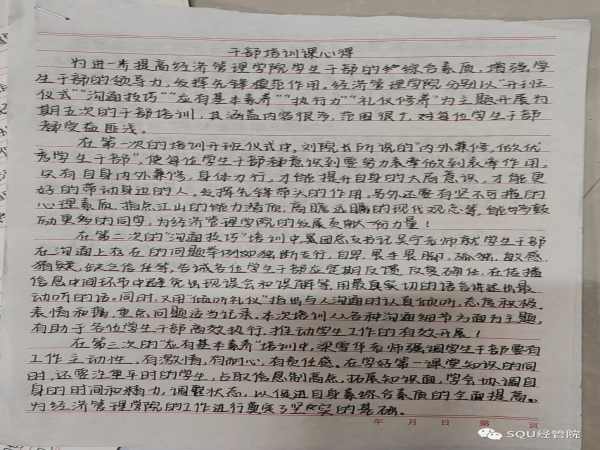 干部培训课心得
为进一步提高经济管理学院学生干部的综合素质，增强学
生干部的领导力，发挥先锋模范作用。经济管理学院分别以“开班
仪式”“沟通技巧”“应有基本素养”“执行力”“礼仪修养”为主题开展为
期五次的干部培训，其涵盖内容很多，范围很广，对每位学生干部
都受益匪浅。
在第一次的培训开班仪式中，刘院长所说的“内外兼修，做优
秀学生干部”，使每位学生干部都意识到要努力表率做到表率作用。
只有自身内外兼修，身体力行，才能提升自身的大局意识，才能更
好的带动身边的人，发挥先锋带头的作用。另外还要有坚不可摧的
心理素质，指点江山的能力指质，高瞻远瞩的现代观念等，能够鼓
动更多的同学，为经济管理学院的发展贡献一份力量！
在第二次的“沟通技巧”培训中，翼团总支书记吴宁老师就学生干部
在沟通上存在的问题举例如独断专行，自卑，眼手鼻脚，孤独，敏感，
猜疑，缺乏信任等，告诫各位学生干部应定期反馈，反复确任，在传播
信息中间环节中避免出现误会和误解等，用最真实切的语言讲述出最
动听的话。同时，又用“倾听礼仪”指出与人沟通时认真倾听，态度积极，
表情和蔼，重点问题适当记录。本次培训从各种沟通细节方面为主题，
有助于各位学生干部高效执行，推动学生工作的有效开展！
在第三次的“应有基本素养”培训中，梁雪华老师强调学生干部要有
工作主动性，有激情，有耐心，有责任感。在学好第一课堂知识的同
时，还要注重平时的学生，占取信息制高点，拓展知识面，学会协调自
身的时间和精力，调整状态，以促进自身素综合素质的全面提高。
为经济管理学院的工作进行奠定了坚实的基础。
年 月 日 第 页
SQU经管院